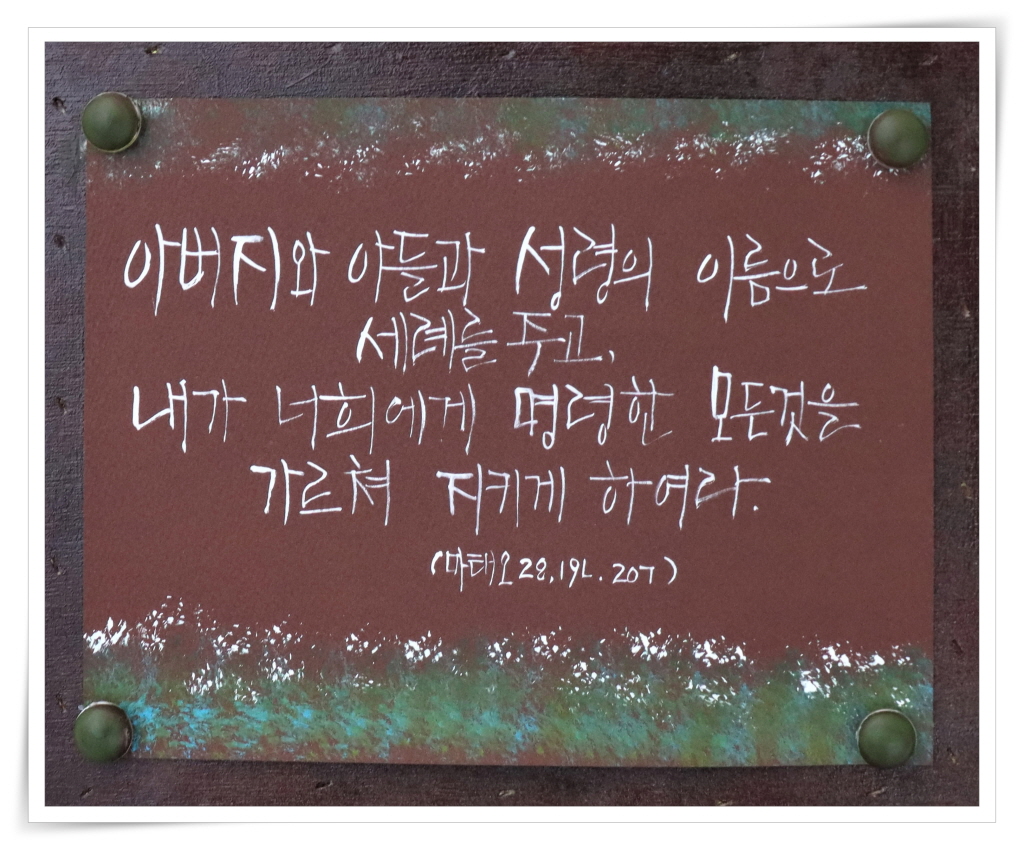 아버지와 아들과 성령의 이름으로
세례를 주고,
내가 너희에게 명령한 모든것을
가르쳐 지키게 하여라.
(마태오 28,19ㄴ.20ㄱ)